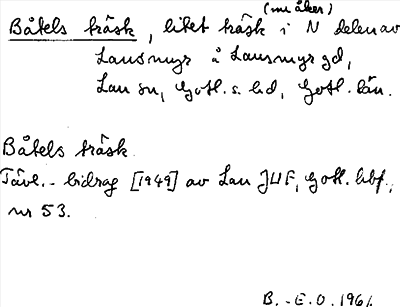 (nu åker)
Båtels träsk, litet träsk i N delen av
Lausmyr å Lausmyr gd,
Lau sn, Gotl. s. hd, Gotl. län.
Båtels träsk
Tävl.-bidrag [1949] av Lau JUF, Gotl. hbf.,
nr 53.
B.-E.O. 1961.